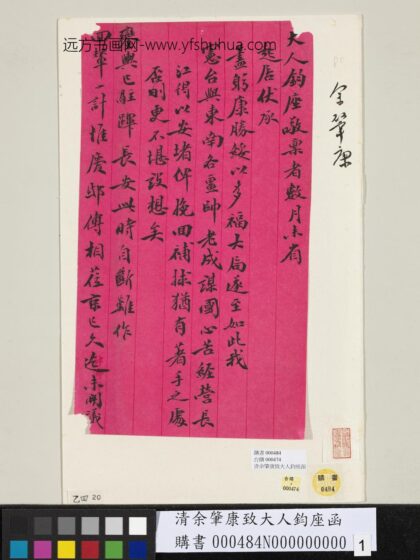 远方书画网 www.yfshuhua.com
余肇康
大人鈞座敬稟者數月未肅
起居伏承
藎躬康勝綏以多福大局遂至如此我
憲台與東南各畺帥老成謀國心苦經營長
江得以安堵俾挽回補捄猶有著手之處
否則更不堪設想矣
鑾輿已駐蹕長安此時自斷難作
回蹕計惟慶邸傅相蒞京已久迄未開議
購書 000484
台購 000474
清余肇康致大人鈞座函
台購
000474
購書
0484
乙四 20
清余肇康致大人鈞座函
購書 000484N000000000
1